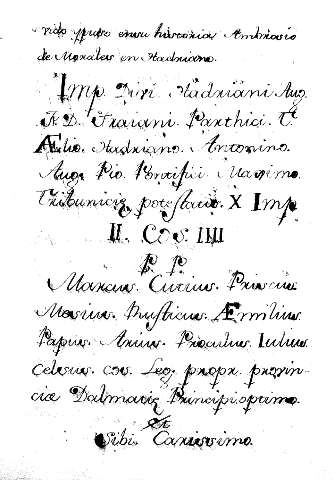 en su historia Ambrosio
de Morales en Hadriano.
Imp. Divi. Hadriani Aug.
F. D. Traiani. Parthici. T.
Ælio. Hadriano. Antonino.
Aug. Pio. Pontifici. Maximo.
Tribuniciæ potestatis. X Imp
II. COS. IIII
P. P.
Marcus. Curius. Priscus.
Mesius. Rusticus. Æmilius.
Papus. Arius. Proculus. Iulius.
Celsus. cos. Leg. propr. provin-
ciæ Dalmatiæ Principi optimo.
et
Sibi. Carissimo.